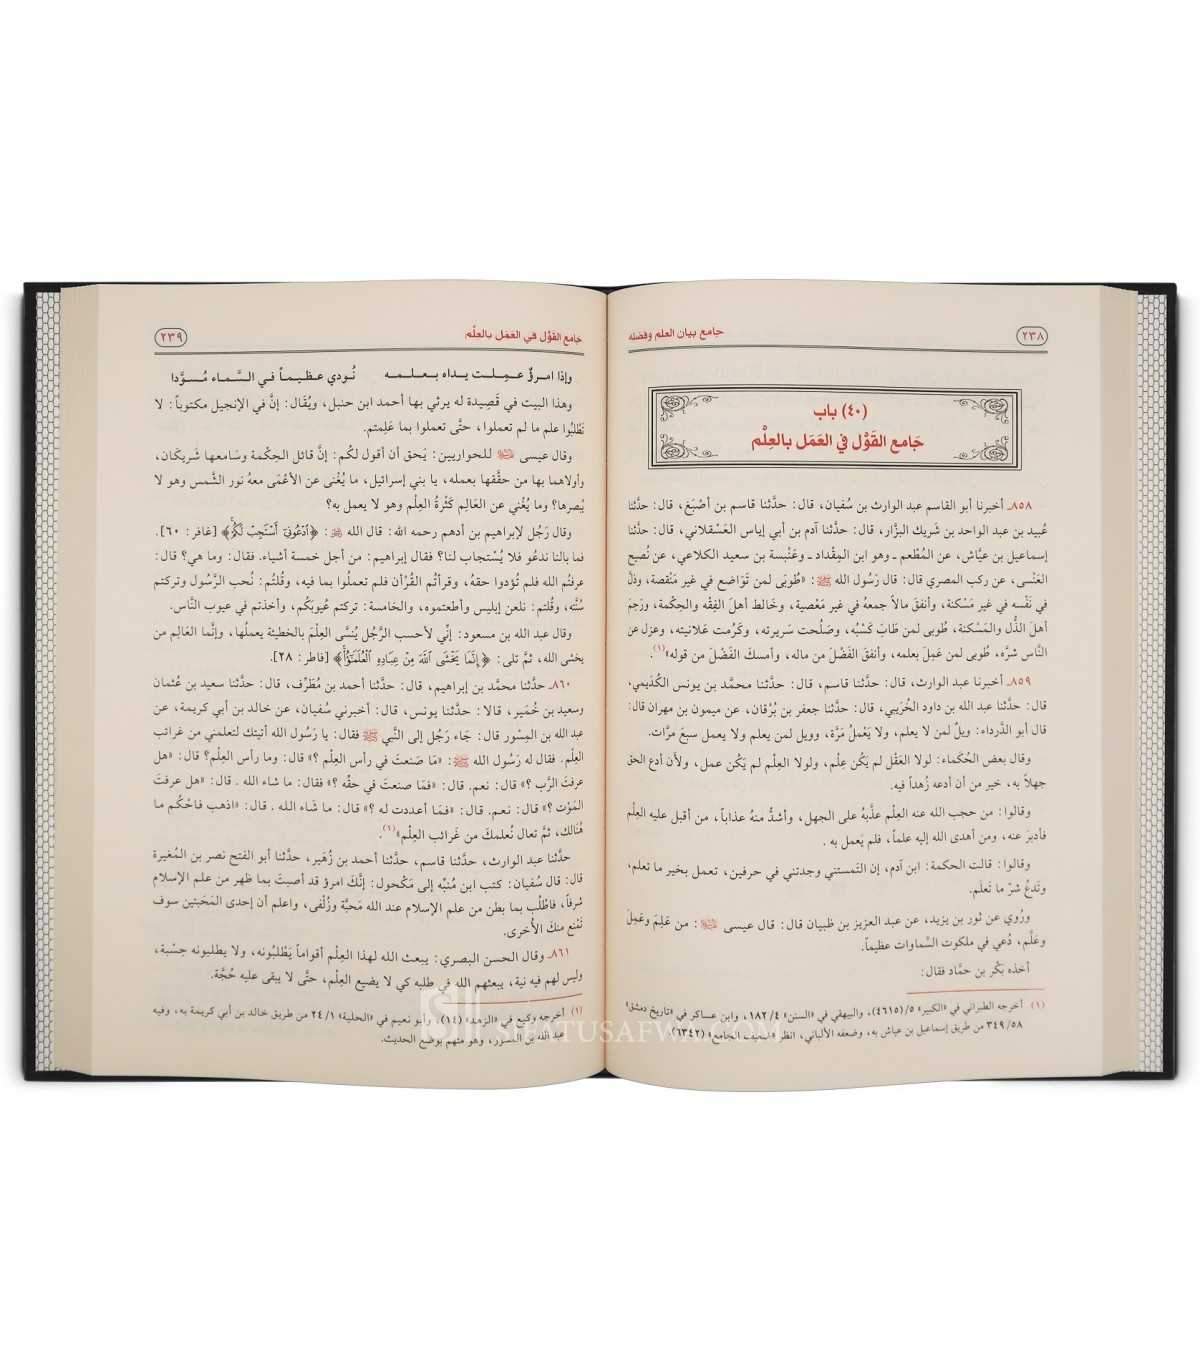 ٢٣٨
جامع بيان العلم وفضله
(٤٠) باب
جَامع القَوْل في العَمَل بالعِلْم
٨٥٨ـ أخبرنا أبو القاسم عبد الوارث بن سُفيان، قال: حدَّثنا قاسم بن أَصْبَغ، قال: حدَّثنا
عُبيد بن عبد الواحد بن شَريك البزَّار، قال: حدَّثنا آدم بن أبي إياس العَسْقلاني، قال: حدَّثنا
إسماعيل بن عيَّاش، عن المُطْعم ـ وهو ابن المِقْداد ـ وعَنْبسة بن سعيد الكلاعي، عن نُصيح
العَنْسي، عن ركب المصري قال: قال رَسُول الله ﷺ: «طُوبَى لمن تَوَاضع في غير مَنْقصة، وذلَّ
في نَفْسه في غير مَسْكنة، وأنفقَ مالاً جمعهُ في غير مَعْصية، وخَالط أهلَ الفِقْه والحِكْمة، ورَحِمَ
أهلَ الذُّل والمَسْكنة، طُوبى لمن طَابَ كَسْبُه، وصَلُحت سَريرته، وكَرُمت عَلانيته، وعزل عن
النَّاس شرَّه، طُوبى لمن عَمِلَ بعلمه، وأنفقَ الفَضْلَ من ماله، وأمسكَ الفَضْلَ من قوله»(١).
٨٥٩ـ أخبرنا عبد الوارث، قال: حدَّثنا قاسم، قال: حدَّثنا محمَّد بن يونس الكُدَيمي،
قال: حدَّثنا عبد الله بن داود الخُرَيبي، قال: حدَّثنا جعفر بن بُرْقان، عن ميمون بن مهران قال:
قال أبو الدَّرداء: ويلٌ لمن لا يعلم، ولا يَعْملُ مَرَّة، وويل لمن يعلم ولا يعمل سبعَ مرَّات.
وقال بعض الحُكَماء: لولا العَقْل لم يَكُن عِلْم، ولولا العِلْم لم يَكُن عمل، ولأن أدع الحق
جهلاً به، خير من أن أدعه زُهداً فيه.
وقالوا: من حجب الله عنه العِلْم عذَّبهُ على الجهل، وأشدُّ منهُ عذاباً، من أقبل عليه العِلْم
فأدبرَ عنه، ومن أهدى الله إليه علماً، فلم يَعمل به.
وقالوا: قالت الحكمة: ابن آدم، إن التَمستني وجدتني في حرفين، تعمل بخير ما تعلم،
وتَدعُ شرّ ما تَعلَم.
ورُوي عن ثور بن يزيد، عن عبد العزيز بن ظبيان قال: قال عيسى ﷺ: من عَلِمَ وعَمِلَ
وعَلَّم، دُعي في ملكوت السَّماوات عظيماً.
أخذه بَكْر بن حمَّاد فقال:
(١) أخرجه الطبراني في «الكبير» ٥/(٤٦١٥)، والبيهقي في «السنن» ١٨٢/٤، وابن عساكر في «تاريخ دمشق»
٣٤٩/٥٨ من طريق إسماعيل بن عياش به، وضعفه الألباني، انظر «ضعيف الجامع» (٦٣٤٢)
جامع القَوْل في العَمَل بالعِلْم
٢٣٩
وإذا امـرؤٌ عـمِـلـت يـداه بـعـلـمـه نُودي عظـيمـاً فـي السَّـماء مُـسَـوَّدا
وهذا البيت في قَصِيدة له يرثي بها أحمد ابن حنبل، ويُقال: إنَّ في الإنجيل مكتوباً: لا
تَطْلبُوا علم ما لم تعملوا، حتَّى تعملوا بما عَلِمتم.
وقال عيسى ﷺ للحواريين: يَحق أن أقول لكُم: إنَّ قائل الحِكْمة وسَامعها شَريكان،
وأولاهما بها من حقَّقها بعمله، يا بني إسرائيل، ما يُغْنى عن الأعْمَى معهُ نور الشَّمس وهو لا
يُبصرها؟ وما يُغْني عن العَالِم كَثْرةُ العِلْم وهو لا يعمل به؟
وقال رَجُل لإبراهيم بن أدهم رحمه الله: قال الله ﷻ: ﴿ٱدْعُونِىٓ أَسْتَجِبْ لَكُمْ﴾ [غافر: ٦٠].
فما بالنا ندعُو فلا يُسْتجاب لنا؟ فقال إبراهيم: من أجل خمسة أشياء. فقال: وما هي؟ قال:
عرفتُم الله فلم تُؤدوا حقهُ، وقرأتُم القُرْآن فلم تعملُوا بما فيه، وقُلتُم: نُحب الرَّسُول وتركتم
سُنَّته، وقُلتم: نلعن إبليس وأطعتموه، والخامسة: تركتم عُيوبَكُم، وأخذتم في عيوب النَّاس.
وقال عبد الله بن مسعود: إنِّي لأحسب الرَّجُل يُنسَّى العِلْمَ بالخطيئة يعملُها، وإنَّما العَالِم من
يخشى الله، ثمَّ تلى: ﴿إِنَّمَا يَخْشَى ٱللَّهَ مِنْ عِبَادِهِ ٱلْعُلَمَـٰٓؤُا۟﴾ [فاطر: ٢٨].
٨٦٠ـ حدَّثنا محمَّد بن إبراهيم، قال: حدَّثنا أحمد بن مُطَرِّف، قال: حدَّثنا سعيد بن عُثمان
وسعيد بن خُمَير، قالا: حدَّثنا يونس، قال: أخبرني سُفيان، عن خالد بن أبي كريمة، عن
عبد الله بن المِسْور قال: جَاء رَجُل إلى النَّبي ﷺ فقال: يا رَسُول الله أتيتك لتعلمني من غرائب
العِلْم. فقال له رَسُول الله ﷺ: «مَا صَنعتَ في رأس العِلْم ؟» قال: وما رأس العِلْم؟ قال: «هل
عرفتَ الرَّب ؟» قال: نعم. قال: «فمَا صنعتَ في حقِّه ؟» فقال: ما شاء الله . قال: «هل عرفتَ
المَوْت ؟» قال: نعم. قال: «فمَا أعددت له ؟» قال: ما شَاء الله . قال: «اذهب فاحْكُم ما
هُنَالك، ثمَّ تعال نُعلمكَ من غَرائب العِلْم»(١).
حدَّثنا عبد الوارث، حدَّثنا قاسم، حدَّثنا أحمد بن زُهَير، حدَّثنا أبو الفتح نصر بن المُغيرة
قال: قال سُفيان: كتب ابن مُنبِّه إلى مَكْحول: إنَّكَ امرؤ قد أصبتَ بما ظهر من علم الإسلام
شرفاً، فاطْلُب بما بطن من علم الإسلام عند الله مَحبَّة وزُلْفى، واعلم أن إحدى المَحَبتين سوف
تَمْنع منكَ الأُخرى.
٨٦١ـ وقال الحسن البصري: يبعث الله لهذا العِلْم أقواماً يَطْلبُونه، ولا يطلبونه حِسْبة،
وليس لهم فيه نية، يبعثهم الله في طلبه كي لا يضيع العِلْم، حتَّى لا يبقى عليه حُجَّة.
(١) أخرجه وكيع في «الزهد» (١٤)، وأبو نعيم في «الحلية» ٢٤/١ من طريق خالد بن أبي كريمة به، وفيه
عبد الله بن المسور، وهو متهم بوضع الحديث.
SIFATUSAFWA.COM